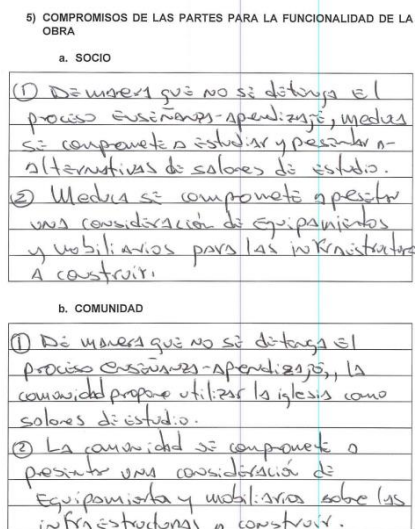 5) COMPROMISOS DE LAS PARTES PARA LA FUNCIONALIDAD DE LA
OBRA
a. SOCIO
① De manera que no se detenga el
proceso enseñanza-aprendizaje, meduca
se compromete a estudiar y presentar a-
alternativas de salones de estudio.
② Meduca se compromete a presentar
una consideración de equipamientos
y mobiliarios para las infraestructuras
a construir.
b. COMUNIDAD
① De manera que no se detenga el
proceso enseñanza-aprendizaje, la
comunidad propone utilizar la iglesia como
salones de estudio.
② La comunidad se compromete a
presentar una consideración de
equipamiento y mobiliarios sobre las
infraestructuras a construir.